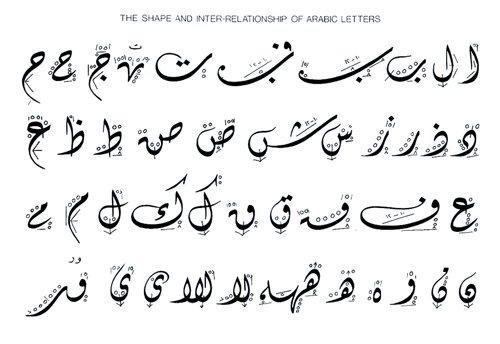 THE SHAPE AND INTER-RELATIONSHIP OF ARABIC LETTERS
ا ل ب ب ف ت ج ح ح
د ذ ر ز س ش ض ص ط ظ ع
ع ف ف ق ق ك ك ل م م
ن ن و ه ه هه لا لا لا ي ي و ر